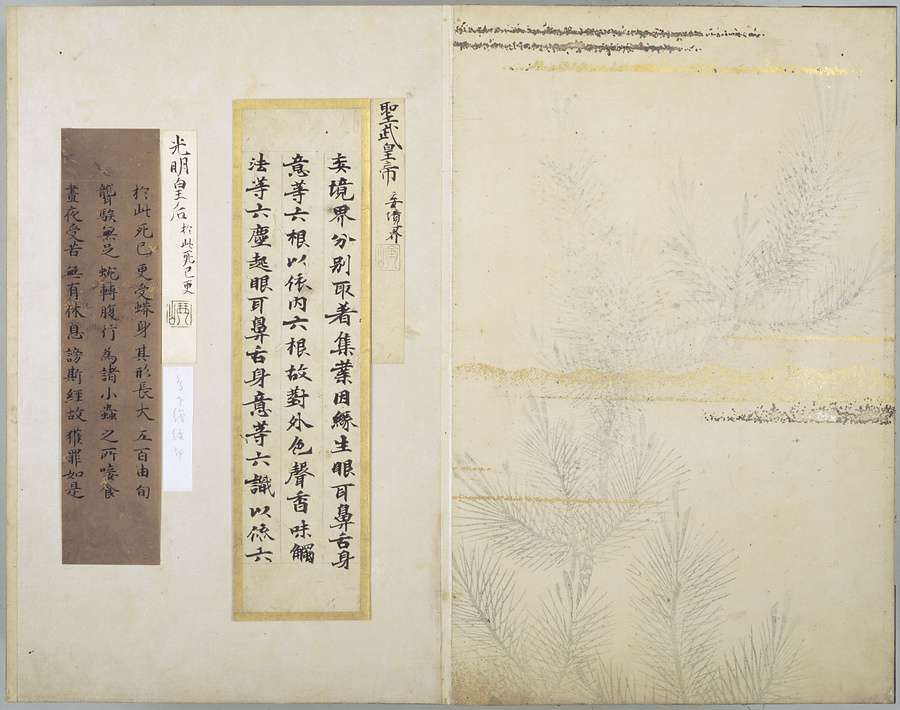 聖武皇帝
妄境界分別取著集業因緣生眼耳鼻舌身
意等六根以依內六根故對外色聲香味觸
法等六塵起眼耳鼻舌身意等六識以依六
光明皇后 於此死已更
於此死已更受蟒身其形長大五百由旬
聾騃無足蜿轉腹行為諸小蟲之所唼食
晝夜受苦無有休息謗斯經故獲罪如是